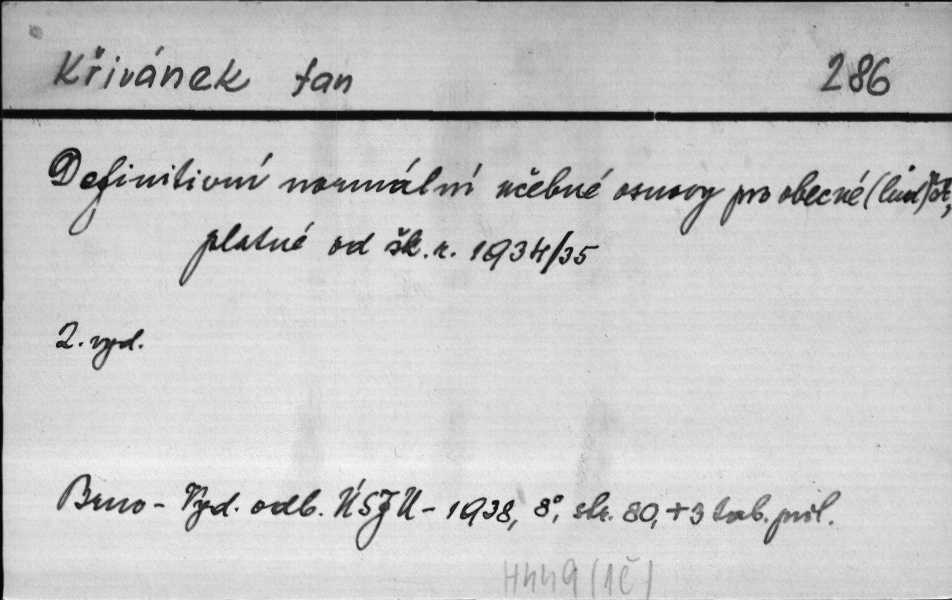 Křivánek Jan 286
Definitivní normální učebné osnovy pro obecné (lid) šk,
platné od šk. r. 1934/35
2. vyd.
Brno - Vyd. odb. ÚSJU - 1938, 8°, str. 80, + 3 tab. příl.
H449 (1č)